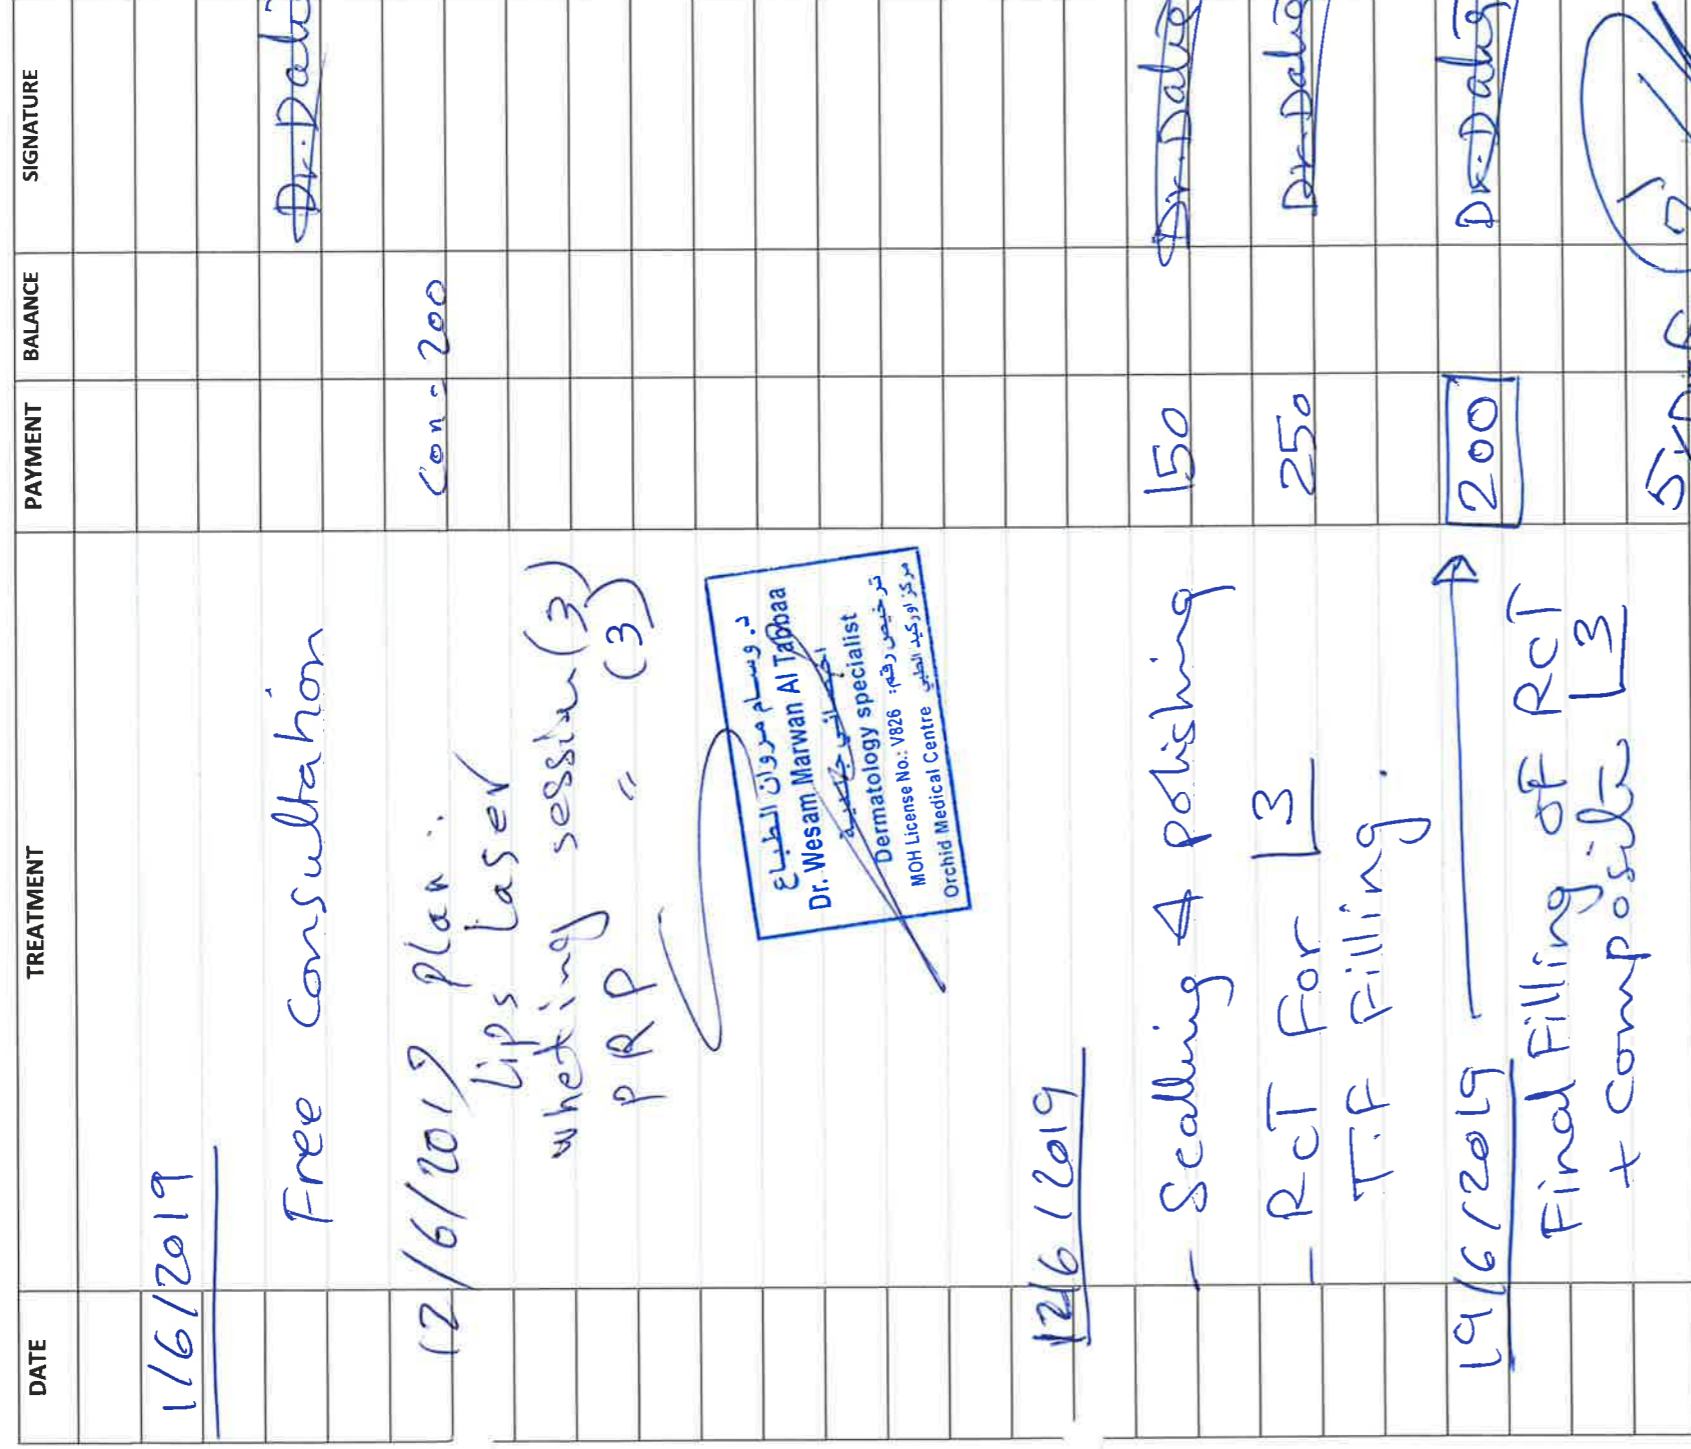 DATE TREATMENT PAYMENT BALANCE SIGNATURE
1/6/2019
Free Consultation Dr. Dalia
12/6/2019 plan: Con - 200
Lips Laser
wheting session (3)
PRP " (3)
د. وسام مروان الطباع
Dr. Wesam Marwan Al Tabbaa
اخصائي جلدية
Dermatology specialist
MOH License No.: V826 ترخيص رقم:
Orchid Medical Centre مركز اوركيد الطبي
12/6/2019
- Scalling & polishing 150 Dr. Dalia
- RCT For 3 250 Dr. Dalia
T.F Filling.
19/6/2019 200 Dr. Dalia
Final Filling of RCT
+ Composite 3